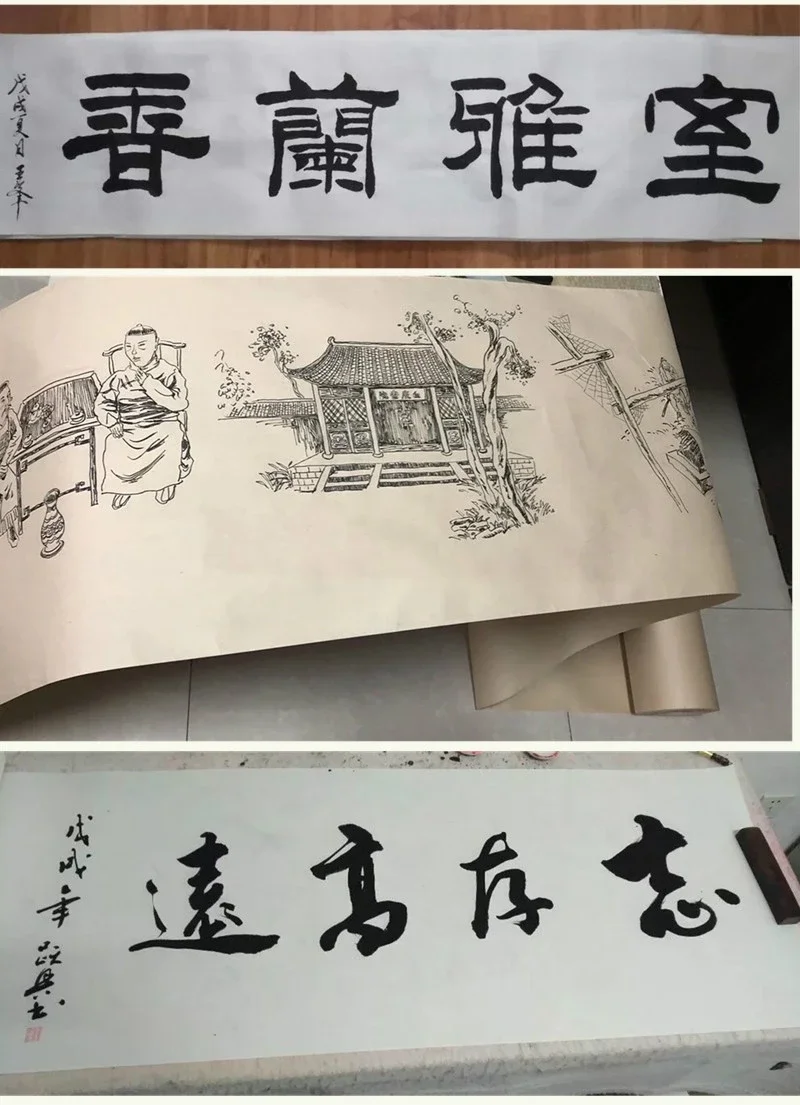 室雅蘭香
戊戌夏月王峯
志存高遠
戊戌年